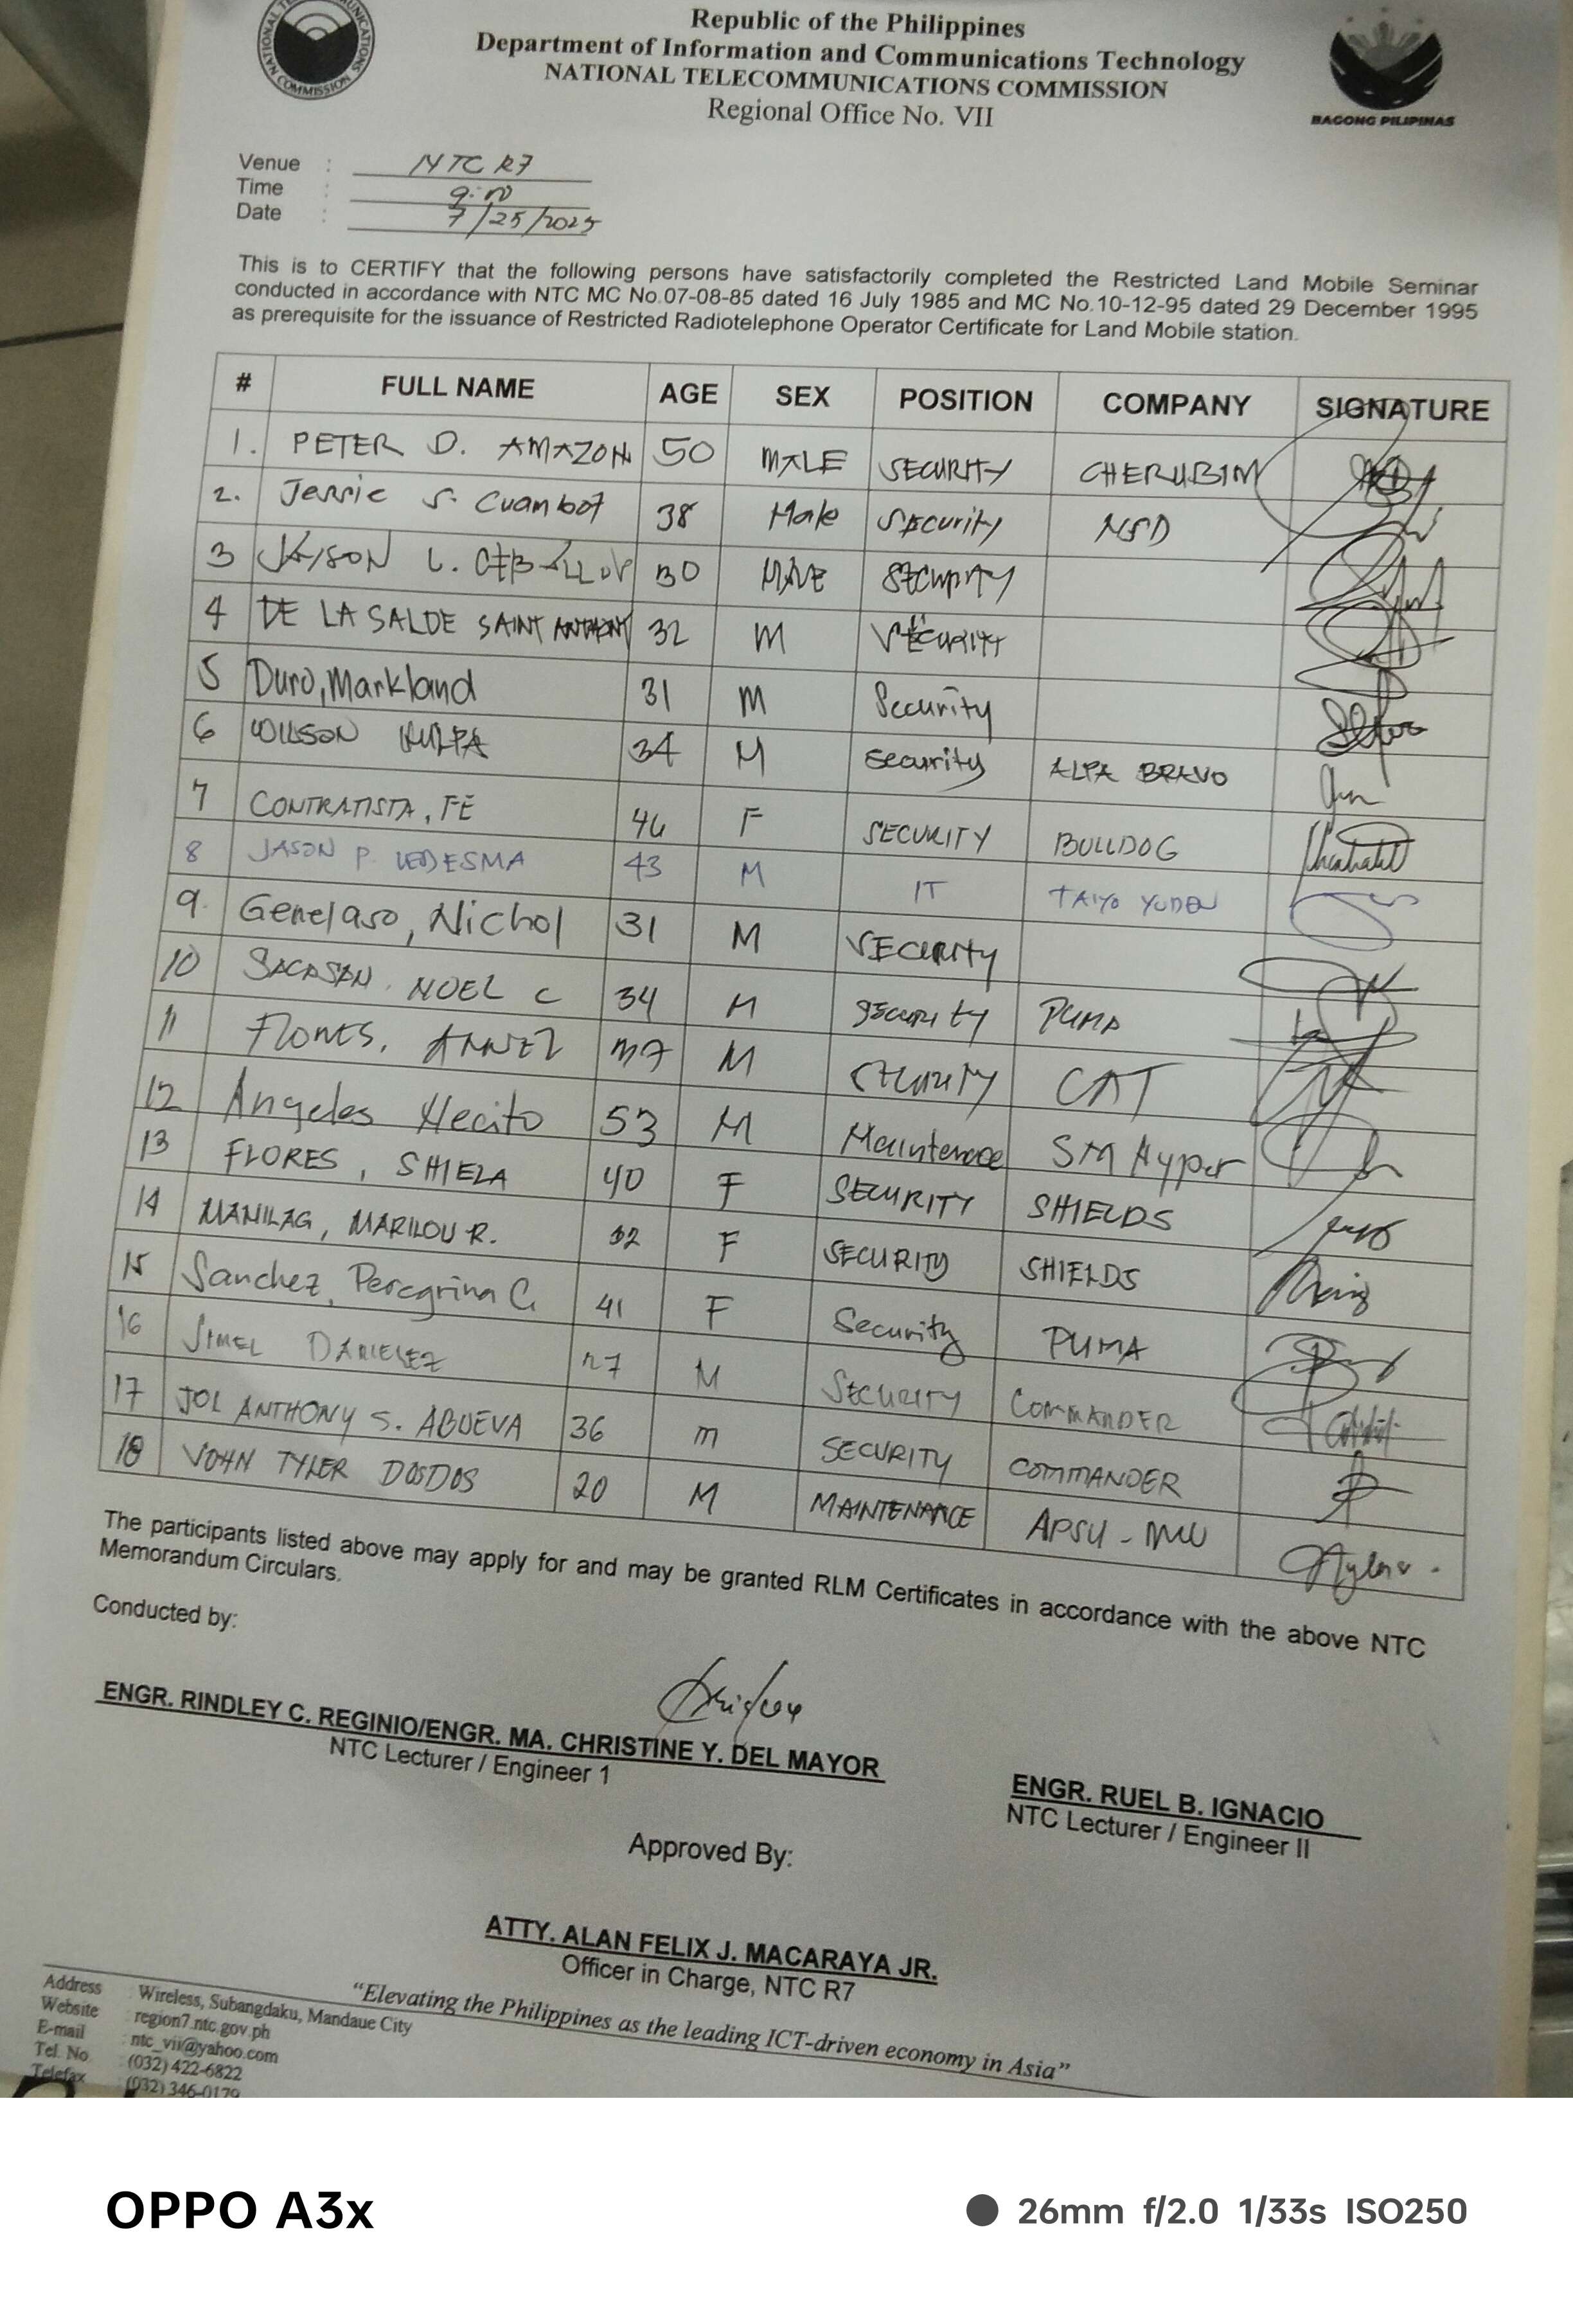 NATIONAL TELECOMMUNICATIONS COMMISSION
Republic of the Philippines
Department of Information and Communications Technology
NATIONAL TELECOMMUNICATIONS COMMISSION
Regional Office No. VII
BAGONG PILIPINAS
Venue : NTC R7
Time : 9:00
Date : 7/25/2025
This is to CERTIFY that the following persons have satisfactorily completed the Restricted Land Mobile Seminar
conducted in accordance with NTC MC No.07-08-85 dated 16 July 1985 and MC No.10-12-95 dated 29 December 1995
as prerequisite for the issuance of Restricted Radiotelephone Operator Certificate for Land Mobile station.
# FULL NAME AGE SEX POSITION COMPANY SIGNATURE
1. PETER D. AMAZON 50 MALE SECURITY CHERUBIM
2. Jessie S. Cuambot 38 Male Security NSD
3 JAYSON L. 30 MALE SECURITY
4 DE LA SALDE SAINT ANTHONY 32 M SECURITY
5 Duro, Markland 31 M Security
6 WILSON 34 M Security ALPA BRAVO
7 CONTRATISTA, FE 46 F SECURITY BULLDOG
8 JASON P. LEDESMA 43 M IT TAIYO YUDEN
9. Genelaso, Nichol 31 M SECURITY
10 SACASAN, NOEL C 34 M Security PUMA
11 FLORES, 37 M SECURITY CAT
12 Angeles Hecito 53 M Maintenace SM Hyper
13 FLORES, SHIELA 40 F SECURITY SHIELDS
14 MANILAG, MARILOU R. 32 F SECURITY SHIELDS
15 Sanchez, Peregrina C. 41 F Security PUMA
16 SIMEL DANIELEZ 27 M SECURITY COMMANDER
17 JOL ANTHONY S. ABUEVA 36 m SECURITY COMMANDER
18 JOHN TYLER DOSDOS 20 M MAINTENANCE APSU - MU
The participants listed above may apply for and may be granted RLM Certificates in accordance with the above NTC
Memorandum Circulars.
Conducted by:
ENGR. RINDLEY C. REGINIO/ENGR. MA. CHRISTINE Y. DEL MAYOR
NTC Lecturer / Engineer 1
ENGR. RUEL B. IGNACIO
NTC Lecturer / Engineer II
Approved By:
ATTY. ALAN FELIX J. MACARAYA JR.
Officer in Charge, NTC R7
"Elevating the Philippines as the leading ICT-driven economy in Asia"
Address : Wireless, Subangdaku, Mandaue City
Website : region7.ntc.gov.ph
E-mail : ntc_vii@yahoo.com
Tel. No : (032) 422-6822
Telefax : (032) 346-0179
OPPO A3x
26mm f/2.0 1/33s ISO250